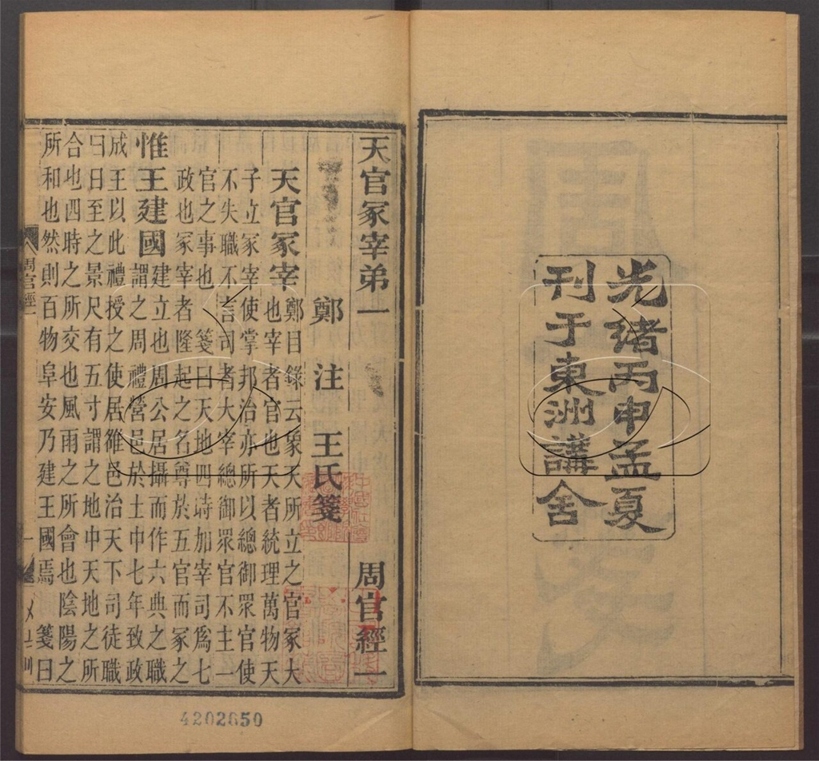 光緒丙申孟夏
刊于東洲講舍
天官冢宰弟一
周官經一
鄭注
王氏箋
天官冢宰
鄭目錄云象天所立之官冢大
也宰者官也天者統理萬物天
子立冢宰使掌邦治亦所以總御眾官使
不失職不言司者大宰總御眾官不主一
官之事也
箋曰天地四時加宰司爲七
政也冢宰者隆起之名尊於五官而冢之
惟王建國
建立也周公居攝而作六典之職
謂之周禮營邑於土中七年致政
成王以此禮授之使居雒邑治天下司徒職
曰日至之景尺有五寸謂之地中天地之所
合也四時之所交也風雨之所會也陰陽之
所和也然則百物阜安乃建王國焉
箋曰
周官經一
一
4202850